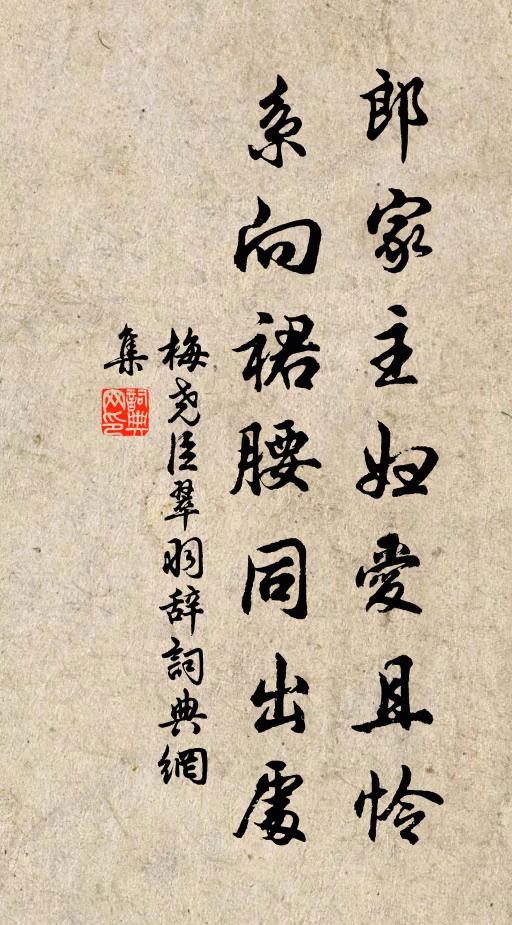 郎家主妇爱且怜
系向裙腰同出处
梅尧臣翠羽辞词典网
集
詞典
网印